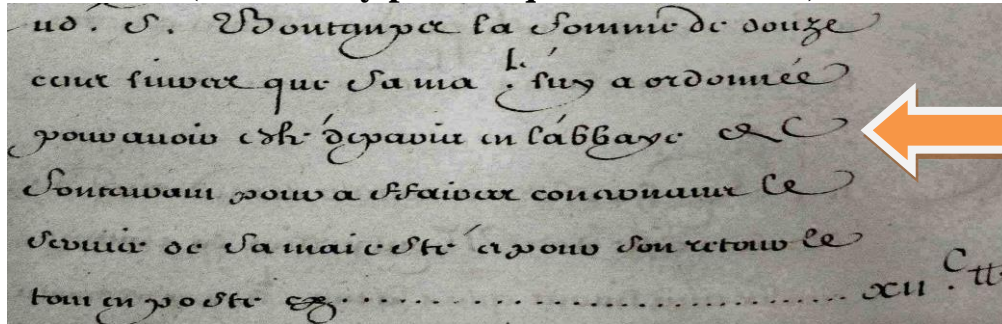 ud. S. la Somme de douze
cent livres que Sa ma luy a ordonnée
pour avoir esté de paris en l'abbaye de
pour affaires concernant le
service de Sa maiesté et pour Son retour le
tout en poste cy .............................. xii C tt